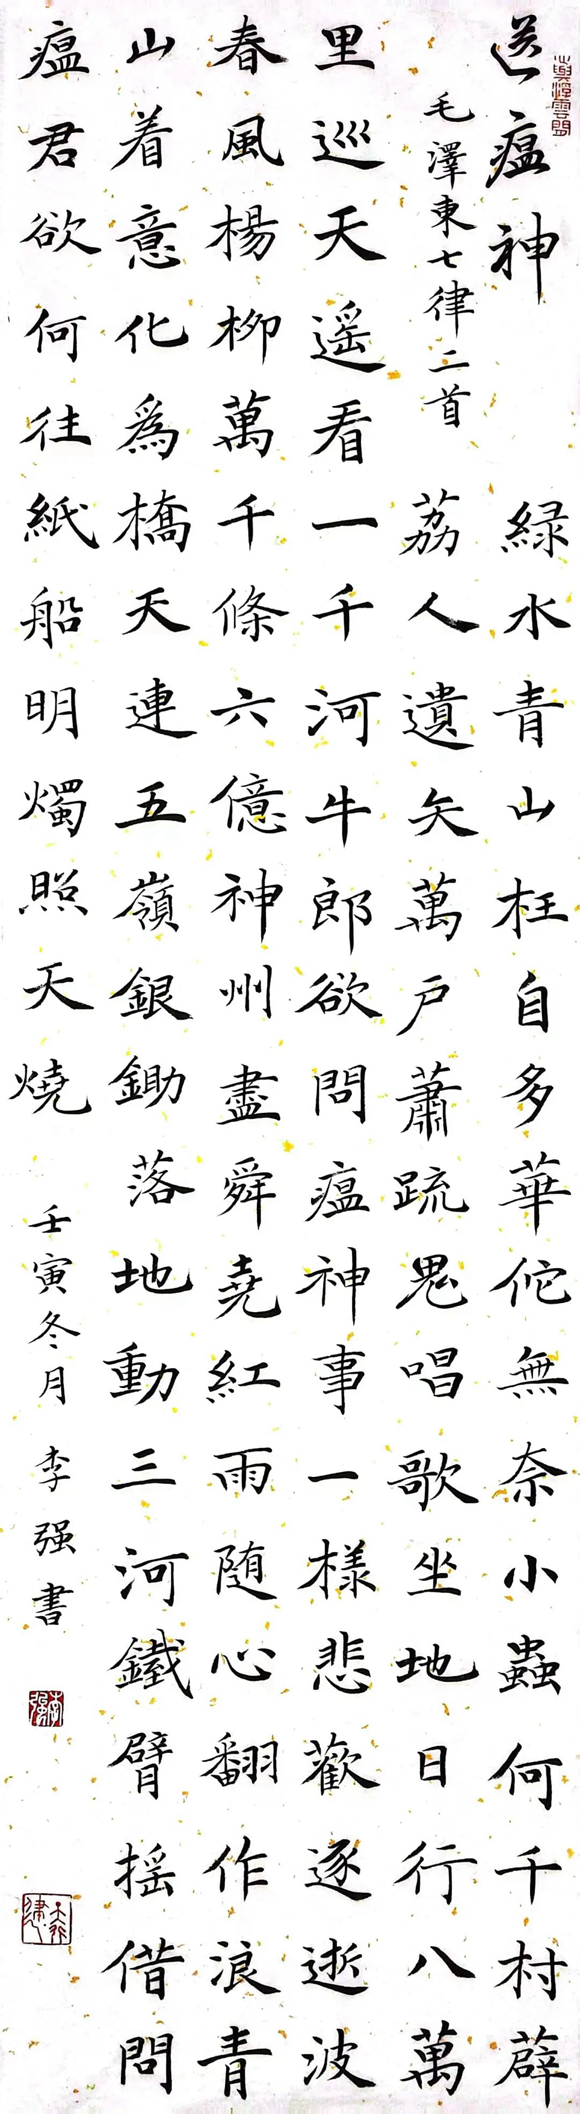 送瘟神 緑水青山枉自多華佗無奈小蟲何千村薜
毛澤東七律二首 荔人遺矢萬戶蕭疏鬼唱歌坐地日行八萬
里巡天遥看一千河牛郎欲問瘟神事一樣悲歡逐逝波
春風楊柳萬千條六億神州盡舜堯紅雨随心翻作浪青
山着意化爲橋天連五嶺銀鋤落地動三河鐵臂摇借問
瘟君欲何往紙船明燭照天燒 壬寅冬月 李强書
李强